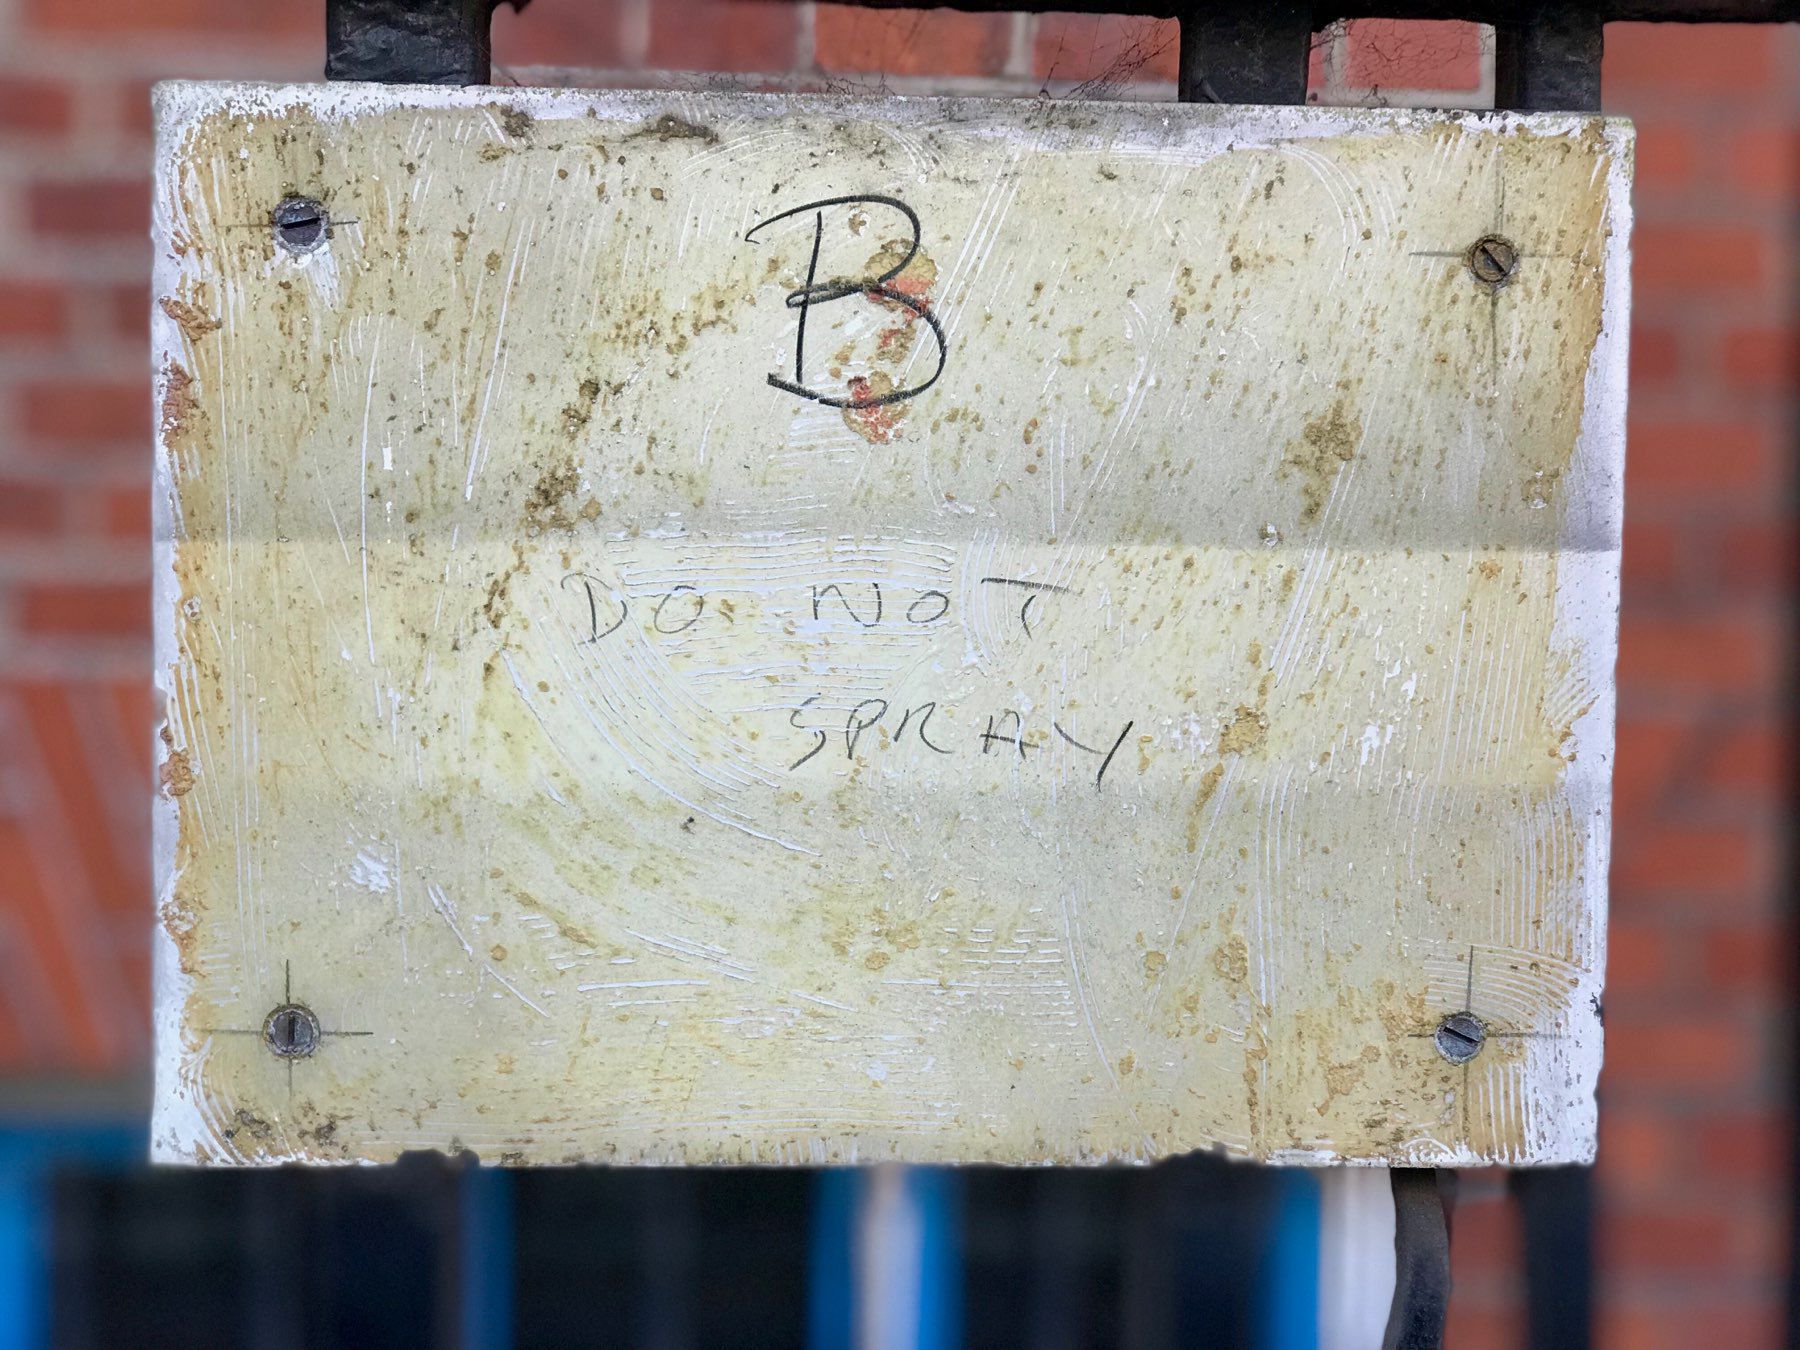 B
DO NOT
SPRAY